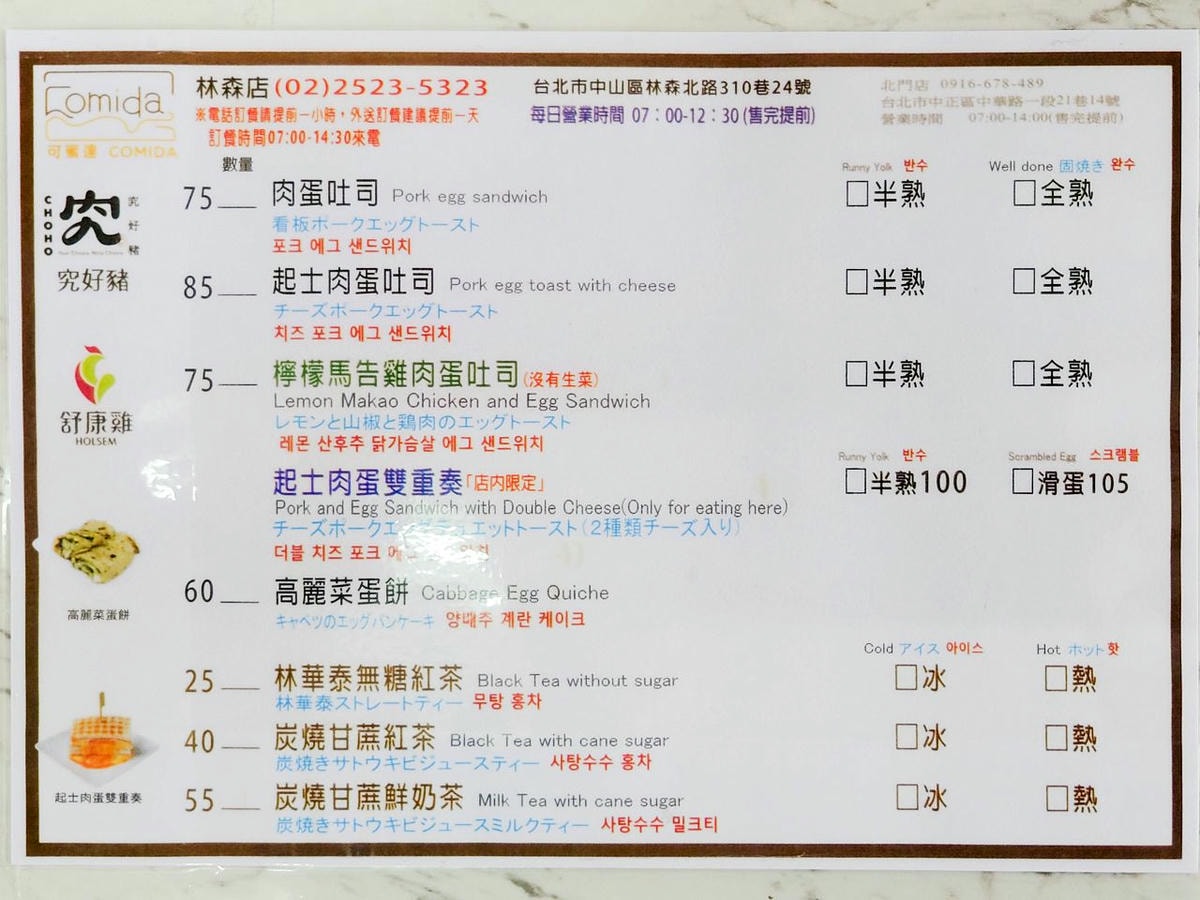 Comida
可蜜達 COMIDA
林森店(02)2523-5323
※電話訂餐請提前一小時,外送訂餐建議提前一天
訂餐時間07:00-14:30來電
台北市中山區林森北路310巷24號
每日營業時間 07:00-12:30(售完提前)
北門店 0916-678-489
台北市中正區中華路一段21巷14號
營業時間 07:00-14:00(售完提前)
數量
Runny Yolk 반수 Well done 固焼き 완수
CHOHO 究 究好豬
究好豬
75 肉蛋吐司 Pork egg sandwich □半熟 □全熟
看板ポークエッグトースト
포크 에그 샌드위치
85 起士肉蛋吐司 Pork egg toast with cheese □半熟 □全熟
チーズポークエッグトースト
치즈 포크 에그 샌드위치
舒康雞
HOLSEM
75 檸檬馬告雞肉蛋吐司(沒有生菜) □半熟 □全熟
Lemon Makao Chicken and Egg Sandwich
レモンと山椒と鶏肉のエッグトースト
레몬 산후추 닭가슴살 에그 샌드위치
Runny Yolk 반수 Scrambled Egg 스크램블
起士肉蛋雙重奏「店内限定」 □半熟100 □滑蛋105
Pork and Egg Sandwich with Double Cheese(Only for eating here)
チーズポークエッグデュエットトースト(2種類チーズ入り)
더블 치즈 포크 에그
高麗菜蛋餅
60 高麗菜蛋餅 Cabbage Egg Quiche
キャベツのエッグパンケーキ 양배추 계란 케이크
Cold アイス 아이스 Hot ホット 핫
25 林華泰無糖紅茶 Black Tea without sugar □冰 □熱
林華泰ストレートティー 무탕 홍차
40 炭燒甘蔗紅茶 Black Tea with cane sugar □冰 □熱
炭焼きサトウキビジュースティー 사탕수수 홍차
起士肉蛋雙重奏
55 炭燒甘蔗鮮奶茶 Milk Tea with cane sugar □冰 □熱
炭焼きサトウキビジュースミルクティー 사탕수수 밀크티